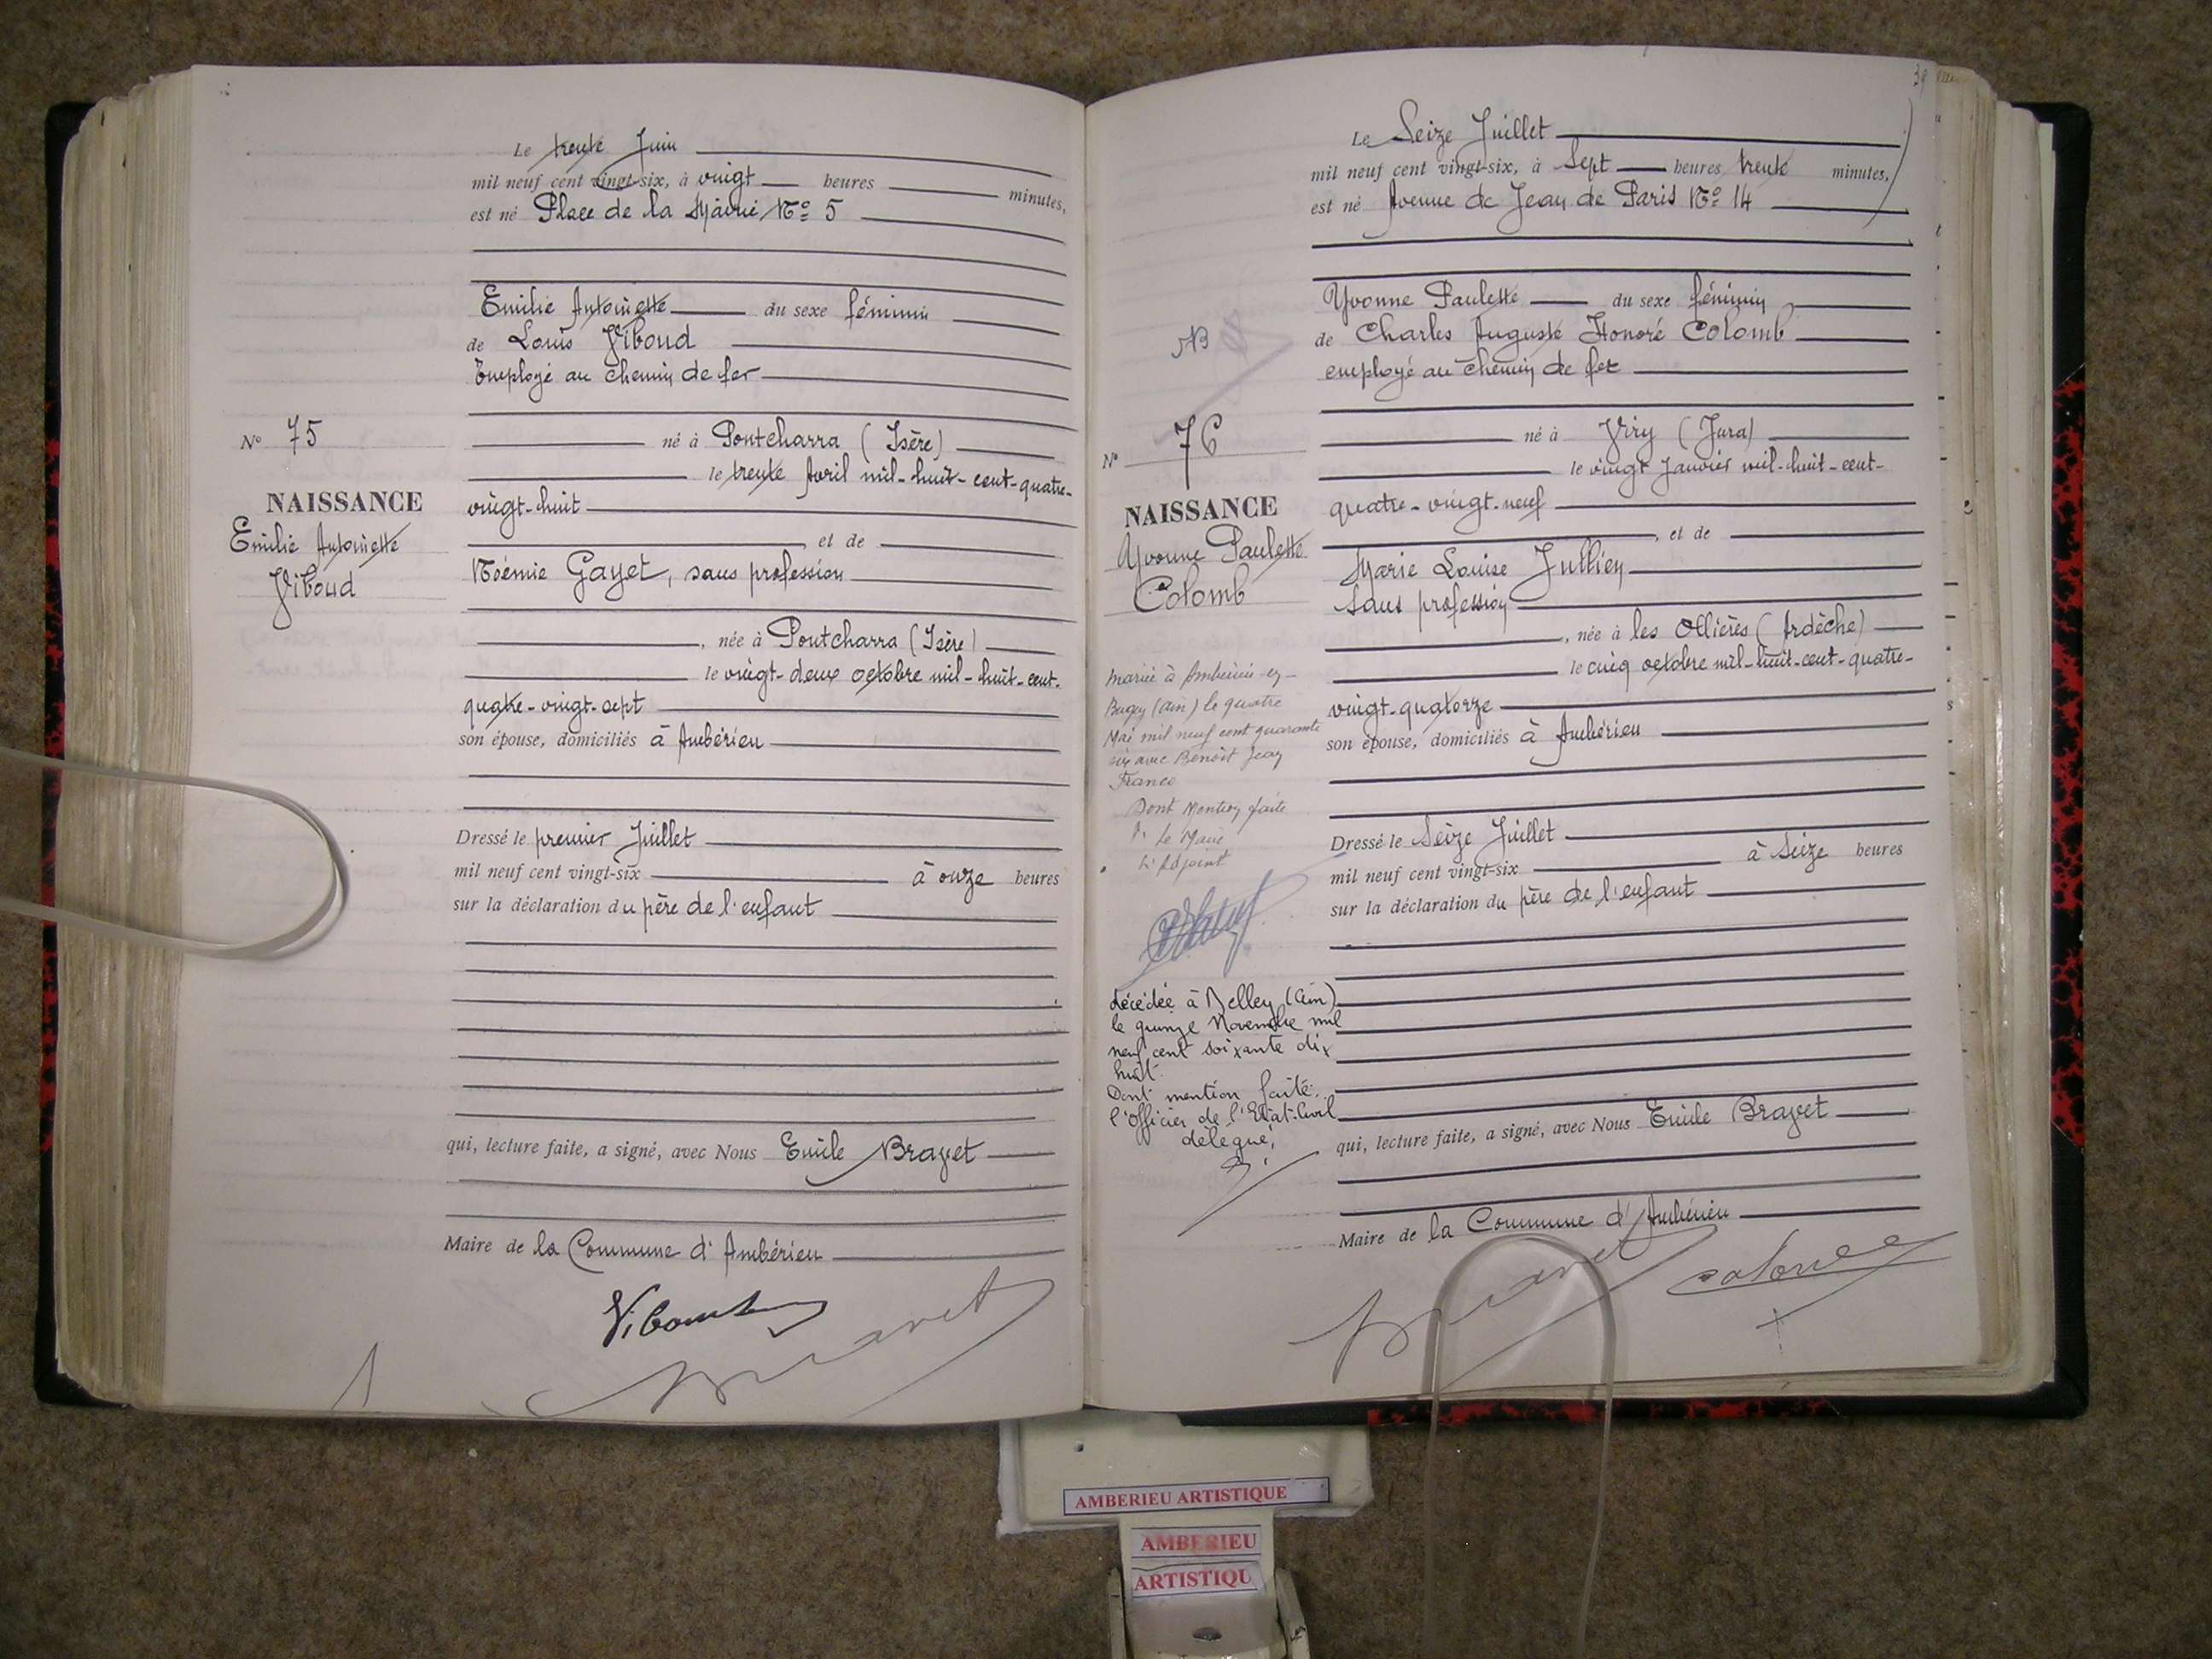 Le trente Juin
mil neuf cent vingt-six, à vingt heures minutes,
est né Place de la Mairie Nº 5
Emilie Antoinette du sexe féminin
de Louis Viboud
Employé au chemin de fer
né à Pontcharra (Isère)
le trente Avril mil-huit-cent-quatre-
vingt-huit
et de
Noémie Gayet, sans profession
, née à Pontcharra (Isère)
le vingt-deux octobre mil-huit-cent-
quatre-vingt-sept
son épouse, domiciliés à Ambérieu
Dressé le premier Juillet
mil neuf cent vingt-six à onze heures
sur la déclaration du père de l'enfant
qui, lecture faite, a signé, avec Nous Emile Bravet
Maire de la Commune d'Ambérieu
Viboud
Bravet
Nº 75
NAISSANCE
Emilie Antoinette
Viboud
39
Le Seize Juillet
mil neuf cent vingt-six, à Sept heures trente minutes,
est né Avenue de Jean de Paris Nº 14
Yvonne Paulette du sexe féminin
de Charles Auguste Honoré Colomb
employé au chemin de fer
né à Viry (Jura)
le vingt Janvier mil-huit-cent-
quatre-vingt-neuf
et de
Marie Louise Jullien
Sans profession
, née à les Ollières (Ardèche)
le cinq octobre mil-huit-cent-quatre-
vingt-quatorze
son épouse, domiciliés à Ambérieu
Dressé le Seize Juillet
mil neuf cent vingt-six à Seize heures
sur la déclaration du père de l'enfant
qui, lecture faite, a signé, avec Nous Emile Bravet
Maire de la Commune d'Ambérieu
Bravet
Colomb
NB
Nº 76
NAISSANCE
Yvonne Paulette
Colomb
mariée à Ambérieu-en-
Bugey (Ain) le quatre
Mai mil neuf cent quarante
six avec Benoît Jean
Franco
Dont Mention faite
Le Maire
L'Adjoint
décédée à Belley (Ain)
le quinze Novembre mil
neuf cent soixante dix
huit.
Dont mention faite.
l'Officier de l'Etat-Civil
délégué,
AMBERIEU ARTISTIQUE
AMBERIEU
ARTISTIQU